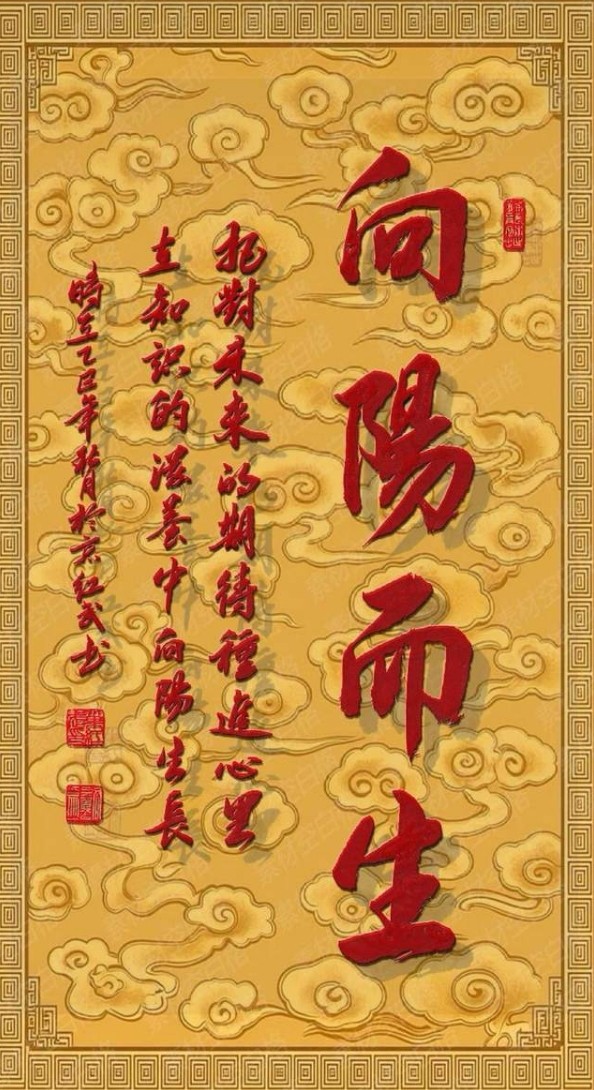 向陽而生
把對未來的期待種進心里
在知识的滋養中向陽生長
時在乙巳年於京红武书